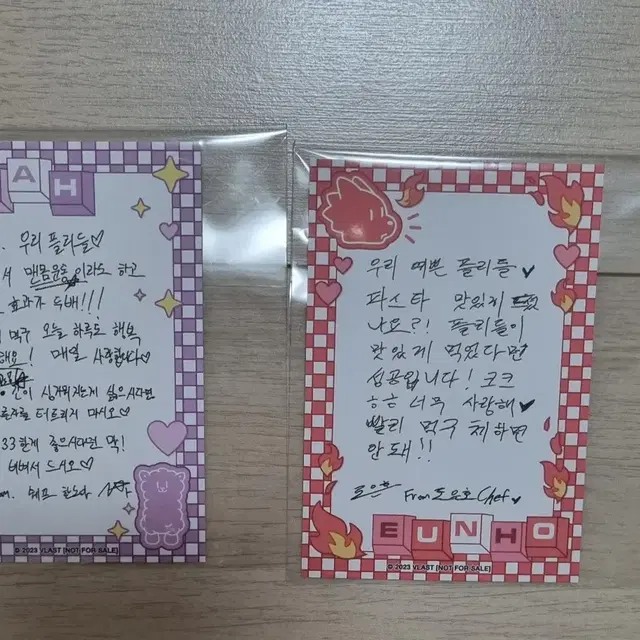 AH
우리 플리들♡
서 맨몸운동 이라도 하고
효과가 두배!!!
먹구 오늘 하루도 행복
해요! 매일 사랑합니다♡
싱거워지는게 싫으시다면
터트리지 마시오♡
33하게 좋으시다면 막!
비벼서 드시오♡
© 2023 VLAST [NOT FOR SALE]
우리 예쁜 플리들♥
파스타 맛있게
나요?! 플리들이
맛있게 먹었다면
성공입니다! ㅋㅋ
ㅎㅎ 너무 사랑해♥
빨리 먹구 체하면
안돼!!
From 도은호 Chef♥
EUNHO
© 2023 VLAST [NOT FOR SALE]